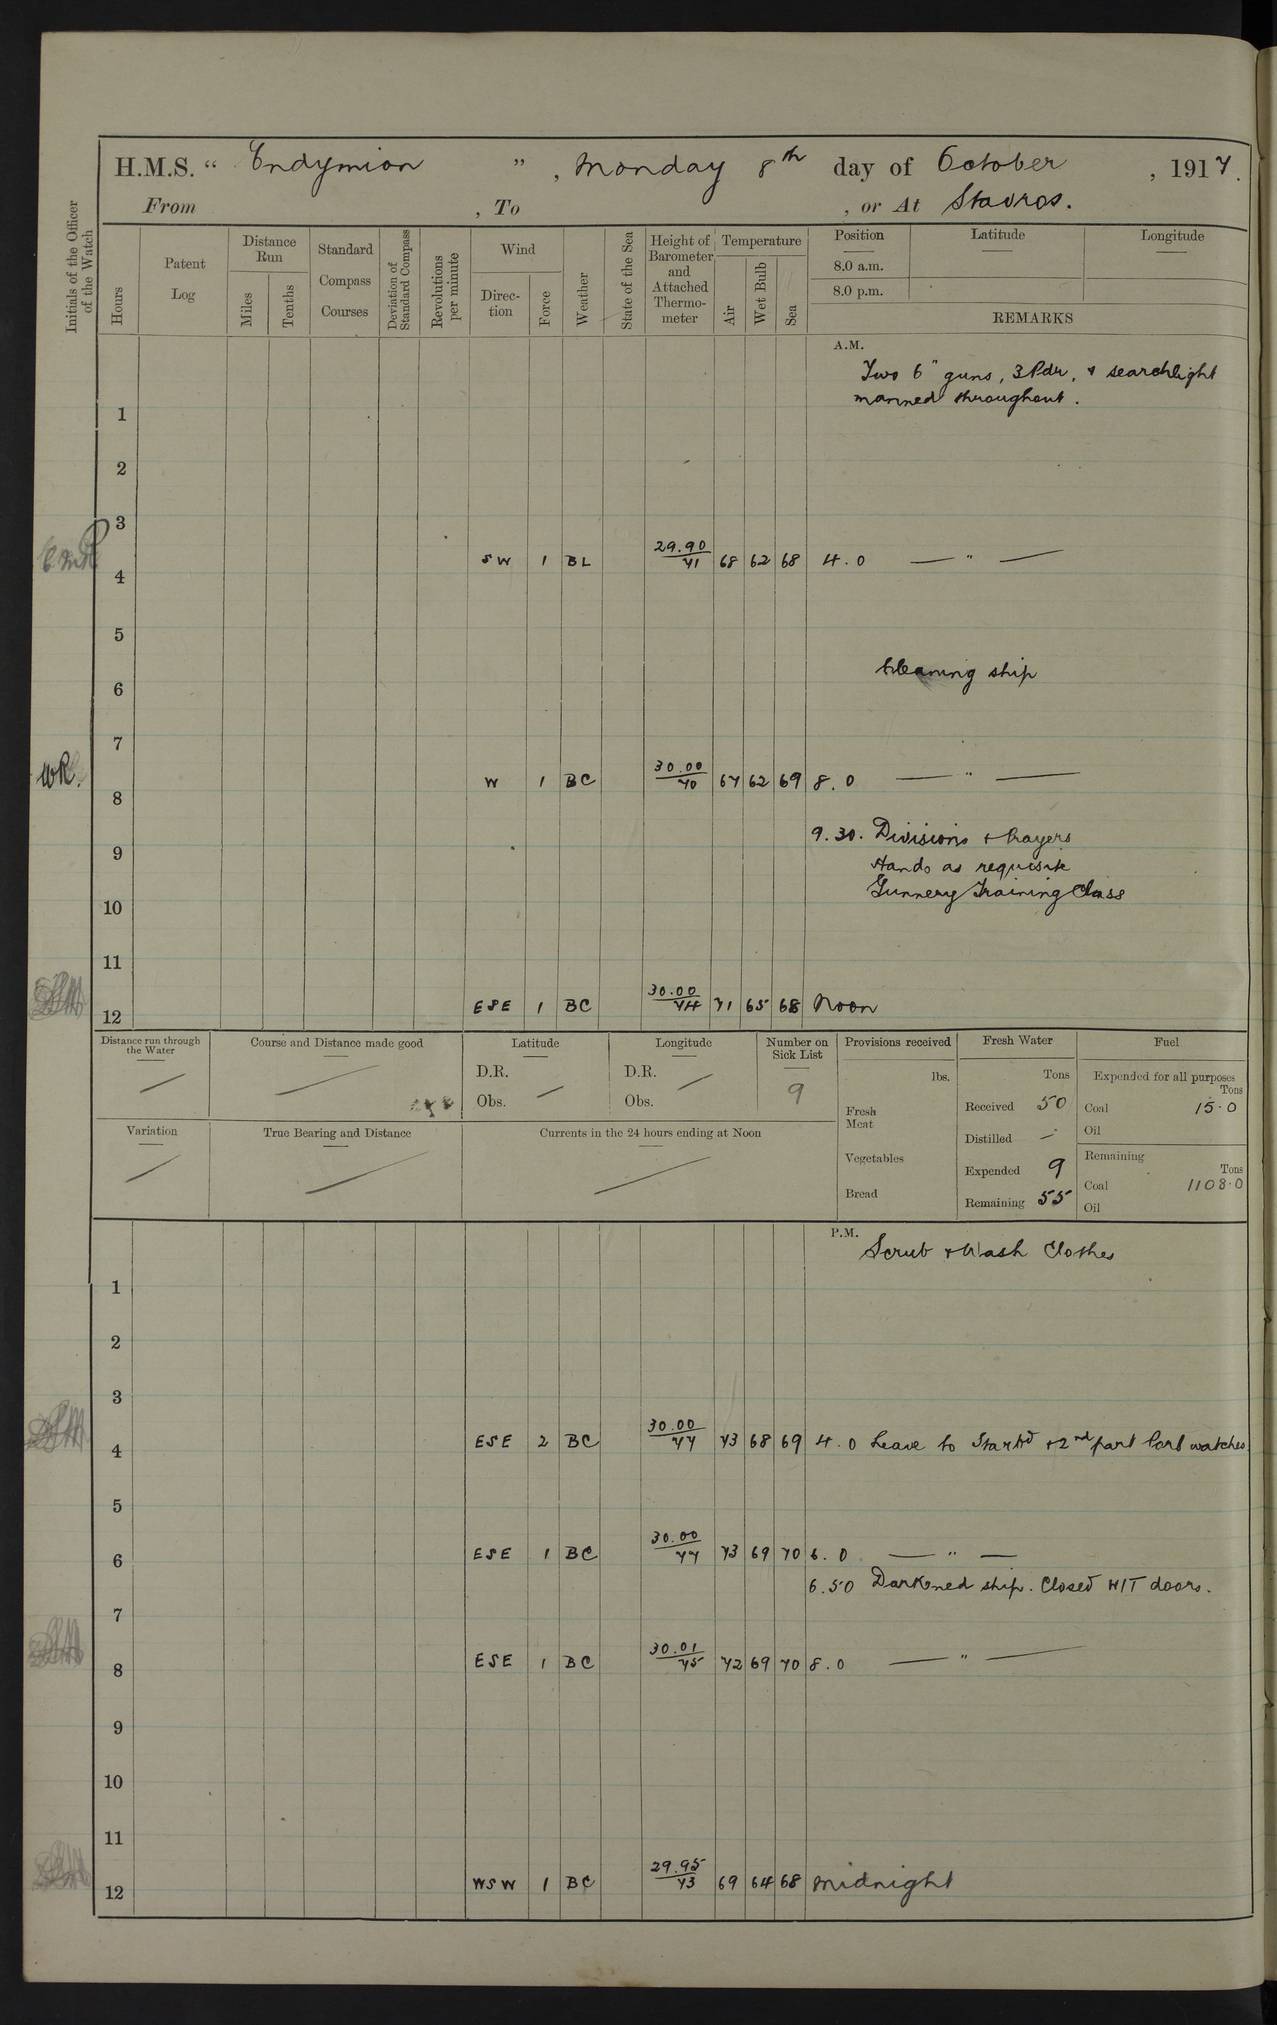 H.M.S. “ Endymion ” , Monday 8th day of October , 1917.
From , To , or At Stavros.
Initials of the Officer of the Watch
Hours
Patent Log
Distance Run
Miles
Tenths
Standard Compass Courses
Deviation of Standard Compass
Revolutions per minute
Wind
Direction
Force
Weather
State of the Sea
Height of Barometer and Attached Thermometer
Temperature
Air
Wet Bulb
Sea
Position
8.0 a.m.
8.0 p.m.
Latitude
Longitude
REMARKS
A.M.
Two 6" guns, 3 Pdr, & searchlight
manned throughout.
1
2
3
SW 1 BL 29.90/71 68 62 68 4.0 — " —
4
5
Cleaning ship
6
7
WR. W 1 BC 30.00/70 67 62 69 8.0 — " —
8
9.30. Divisions & Prayers
9
Hands as requisite
Gunnery Training Class
10
11
ESE 1 BC 30.00/74 71 65 68 Noon
12
Distance run through the Water
Course and Distance made good
Latitude
D.R.
Obs.
Longitude
D.R.
Obs.
Number on Sick List
9
Provisions received
lbs.
Fresh Meat
Vegetables
Bread
Fresh Water
Tons
Received 50
Distilled —
Expended 9
Remaining 55
Fuel
Expended for all purposes
Tons
Coal 15.0
Oil
Remaining
Tons
Coal 1108.0
Oil
Variation
True Bearing and Distance
Currents in the 24 hours ending at Noon
P.M.
Scrub & Wash Clothes
1
2
3
ESE 2 BC 30.00/77 73 68 69 4.0 Leave to Starbd & 2nd part Port watches
4
5
ESE 1 BC 30.00/77 73 69 70 6.0 — " —
6
6.50 Darkened ship. Closed W/T doors.
7
ESE 1 BC 30.01/75 72 69 70 8.0 — " —
8
9
10
11
WSW 1 BC 29.95/73 69 64 68 Midnight
12